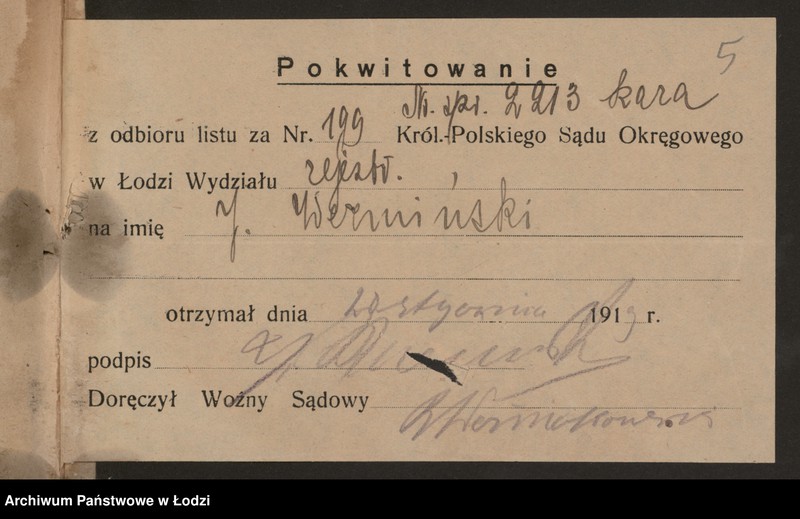 5
Pokwitowanie
Nr. spr. 2213 kara
z odbioru listu za Nr. 199 Król.-Polskiego Sądu Okręgowego
w Łodzi Wydziału rejestr.
na imię J. Wermiński
otrzymał dnia 20 stycznia 1919 r.
podpis
Doręczył Woźny Sądowy
Archiwum Państwowe w Łodzi